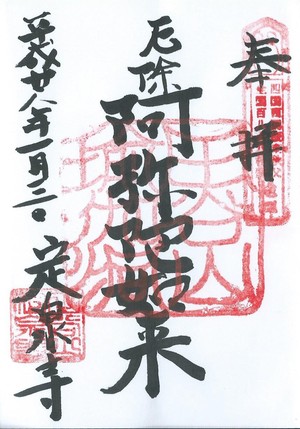 奉拝
厄除
阿弥陀如来
平成廿八年一月二日
定泉寺